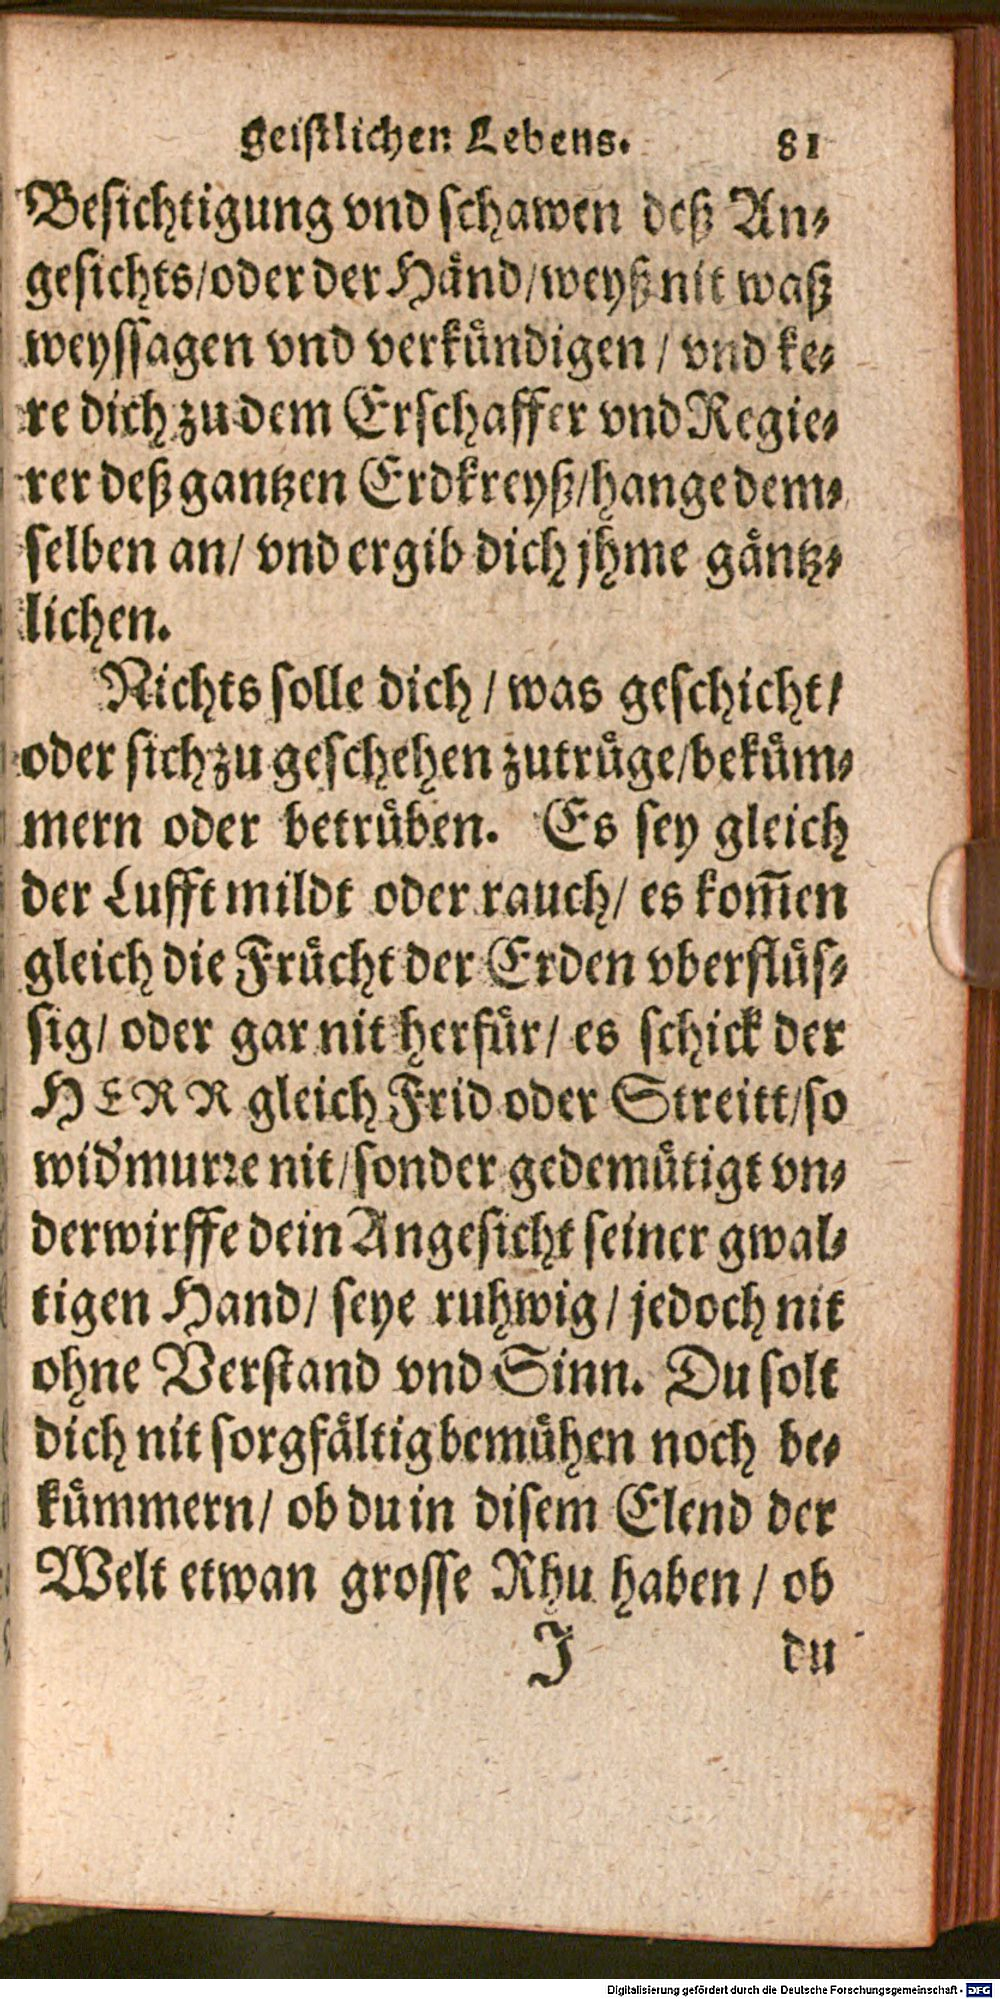 Geistlichen Lebens. 81
Besichtigung vnd schawen deß An⸗
gesichts/ oder der Händ/ weyß nit waß
weyssagen vnd verkündigen/ vnd ke⸗
re dich zu dem Erschaffer vnd Regie⸗
rer deß gantzen Erdkreyß/ hange dem⸗
selben an/ vnd ergib dich jhme gäntz⸗
lichen.
Nichts solle dich/ was geschicht/
oder sich zu geschehen zutrüge/ beküm⸗
mern oder betrüben. Es sey gleich
der Lufft mildt oder rauch/ es kom̃en
gleich die Frücht der Erden vberflüs⸗
sig/ oder gar nit herfür/ es schick der
HERR gleich Frid oder Streitt/ so
wid'murre nit/ sonder gedemütigt vn⸗
derwirffe dein Angesicht seiner gwal⸗
tigen Hand/ seye ruhwig/ jedoch nit
ohne Verstand vnd Sinn. Du solt
dich nit sorgfältig bemühen noch be⸗
kümmern/ ob du in disem Elend der
Welt etwan grosse Rhu haben/ ob
J du
Digitalisierung gefördert durch die Deutsche Forschungsgemeinschaft - DFG